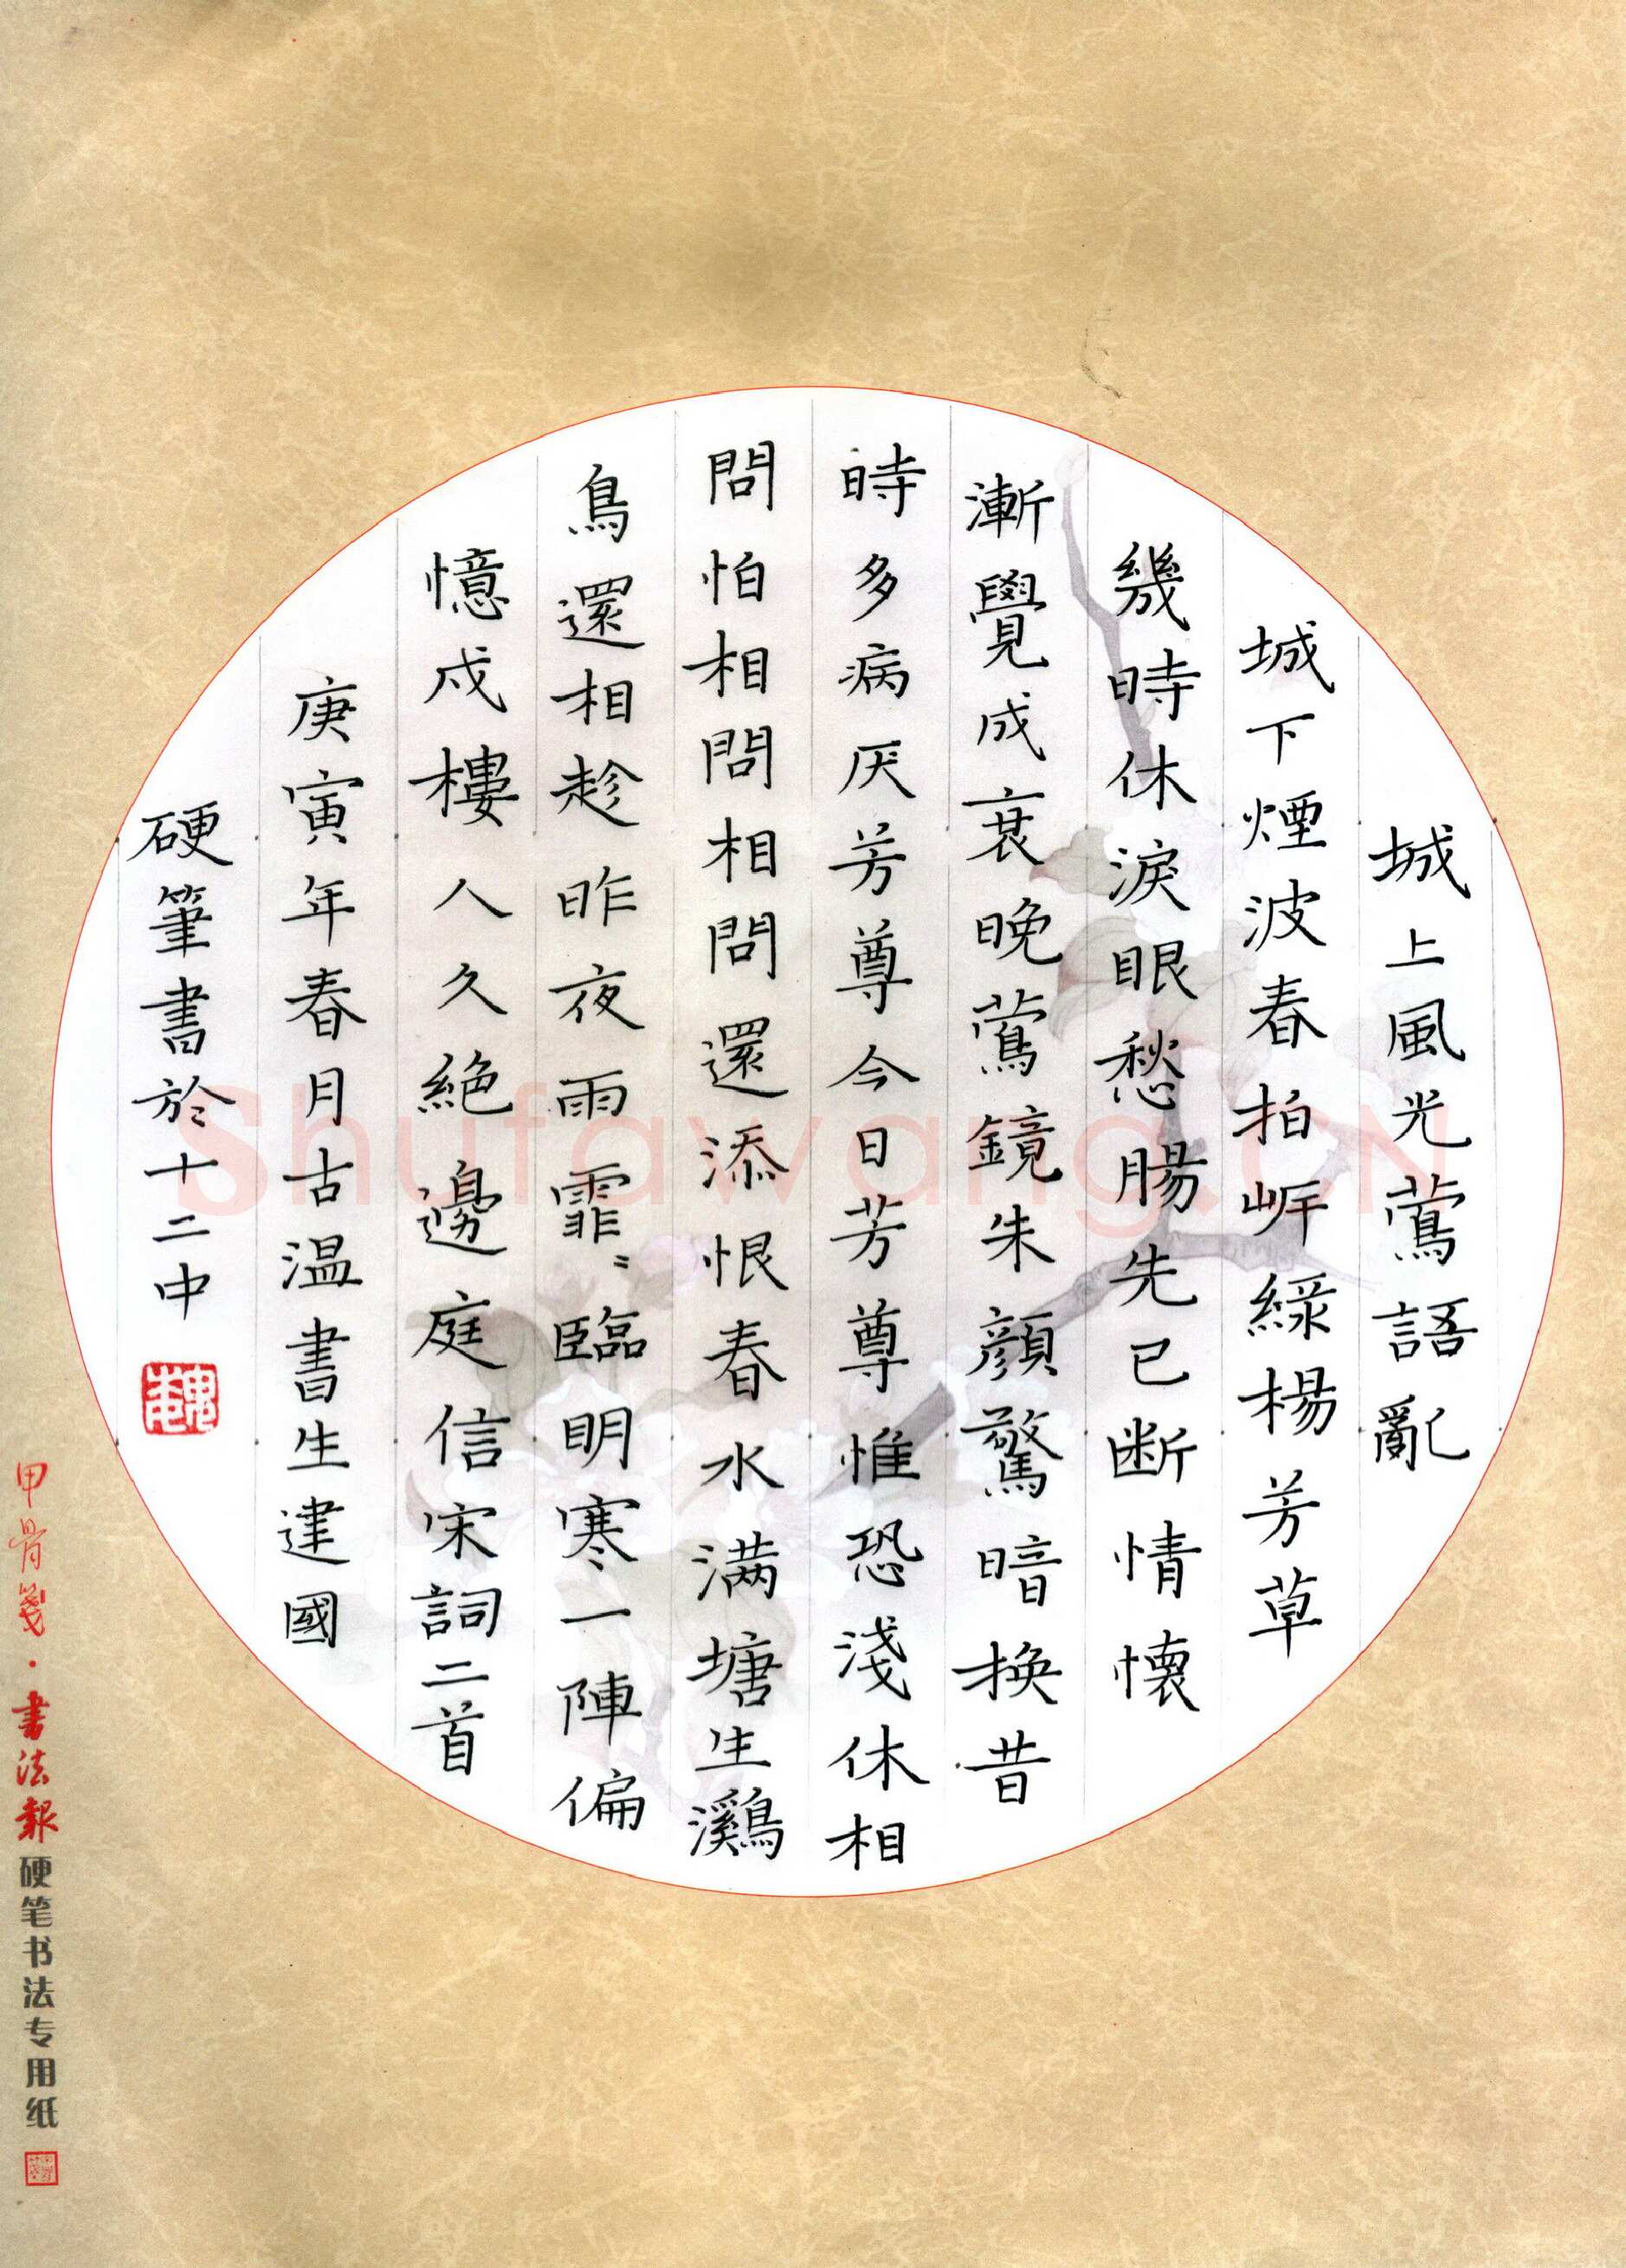 城上風光鶯語亂
城下煙波春拍岸綠楊芳草
幾時休淚眼愁腸先已断情懷
漸覺成衰晚鶯鏡朱顏驚暗換昔
時多病厌芳尊今日芳尊惟恐淺休相
問怕相問相問還添恨春水满塘生鸂
鳥還相趁昨夜雨霏〻臨明寒一陣偏
憶戍樓人久絶邊庭信宋詞二首
庚寅年春月古温書生建國
硬筆書於十二中
甲骨箋·書法報硬笔书法专用纸
Shufawang.CN